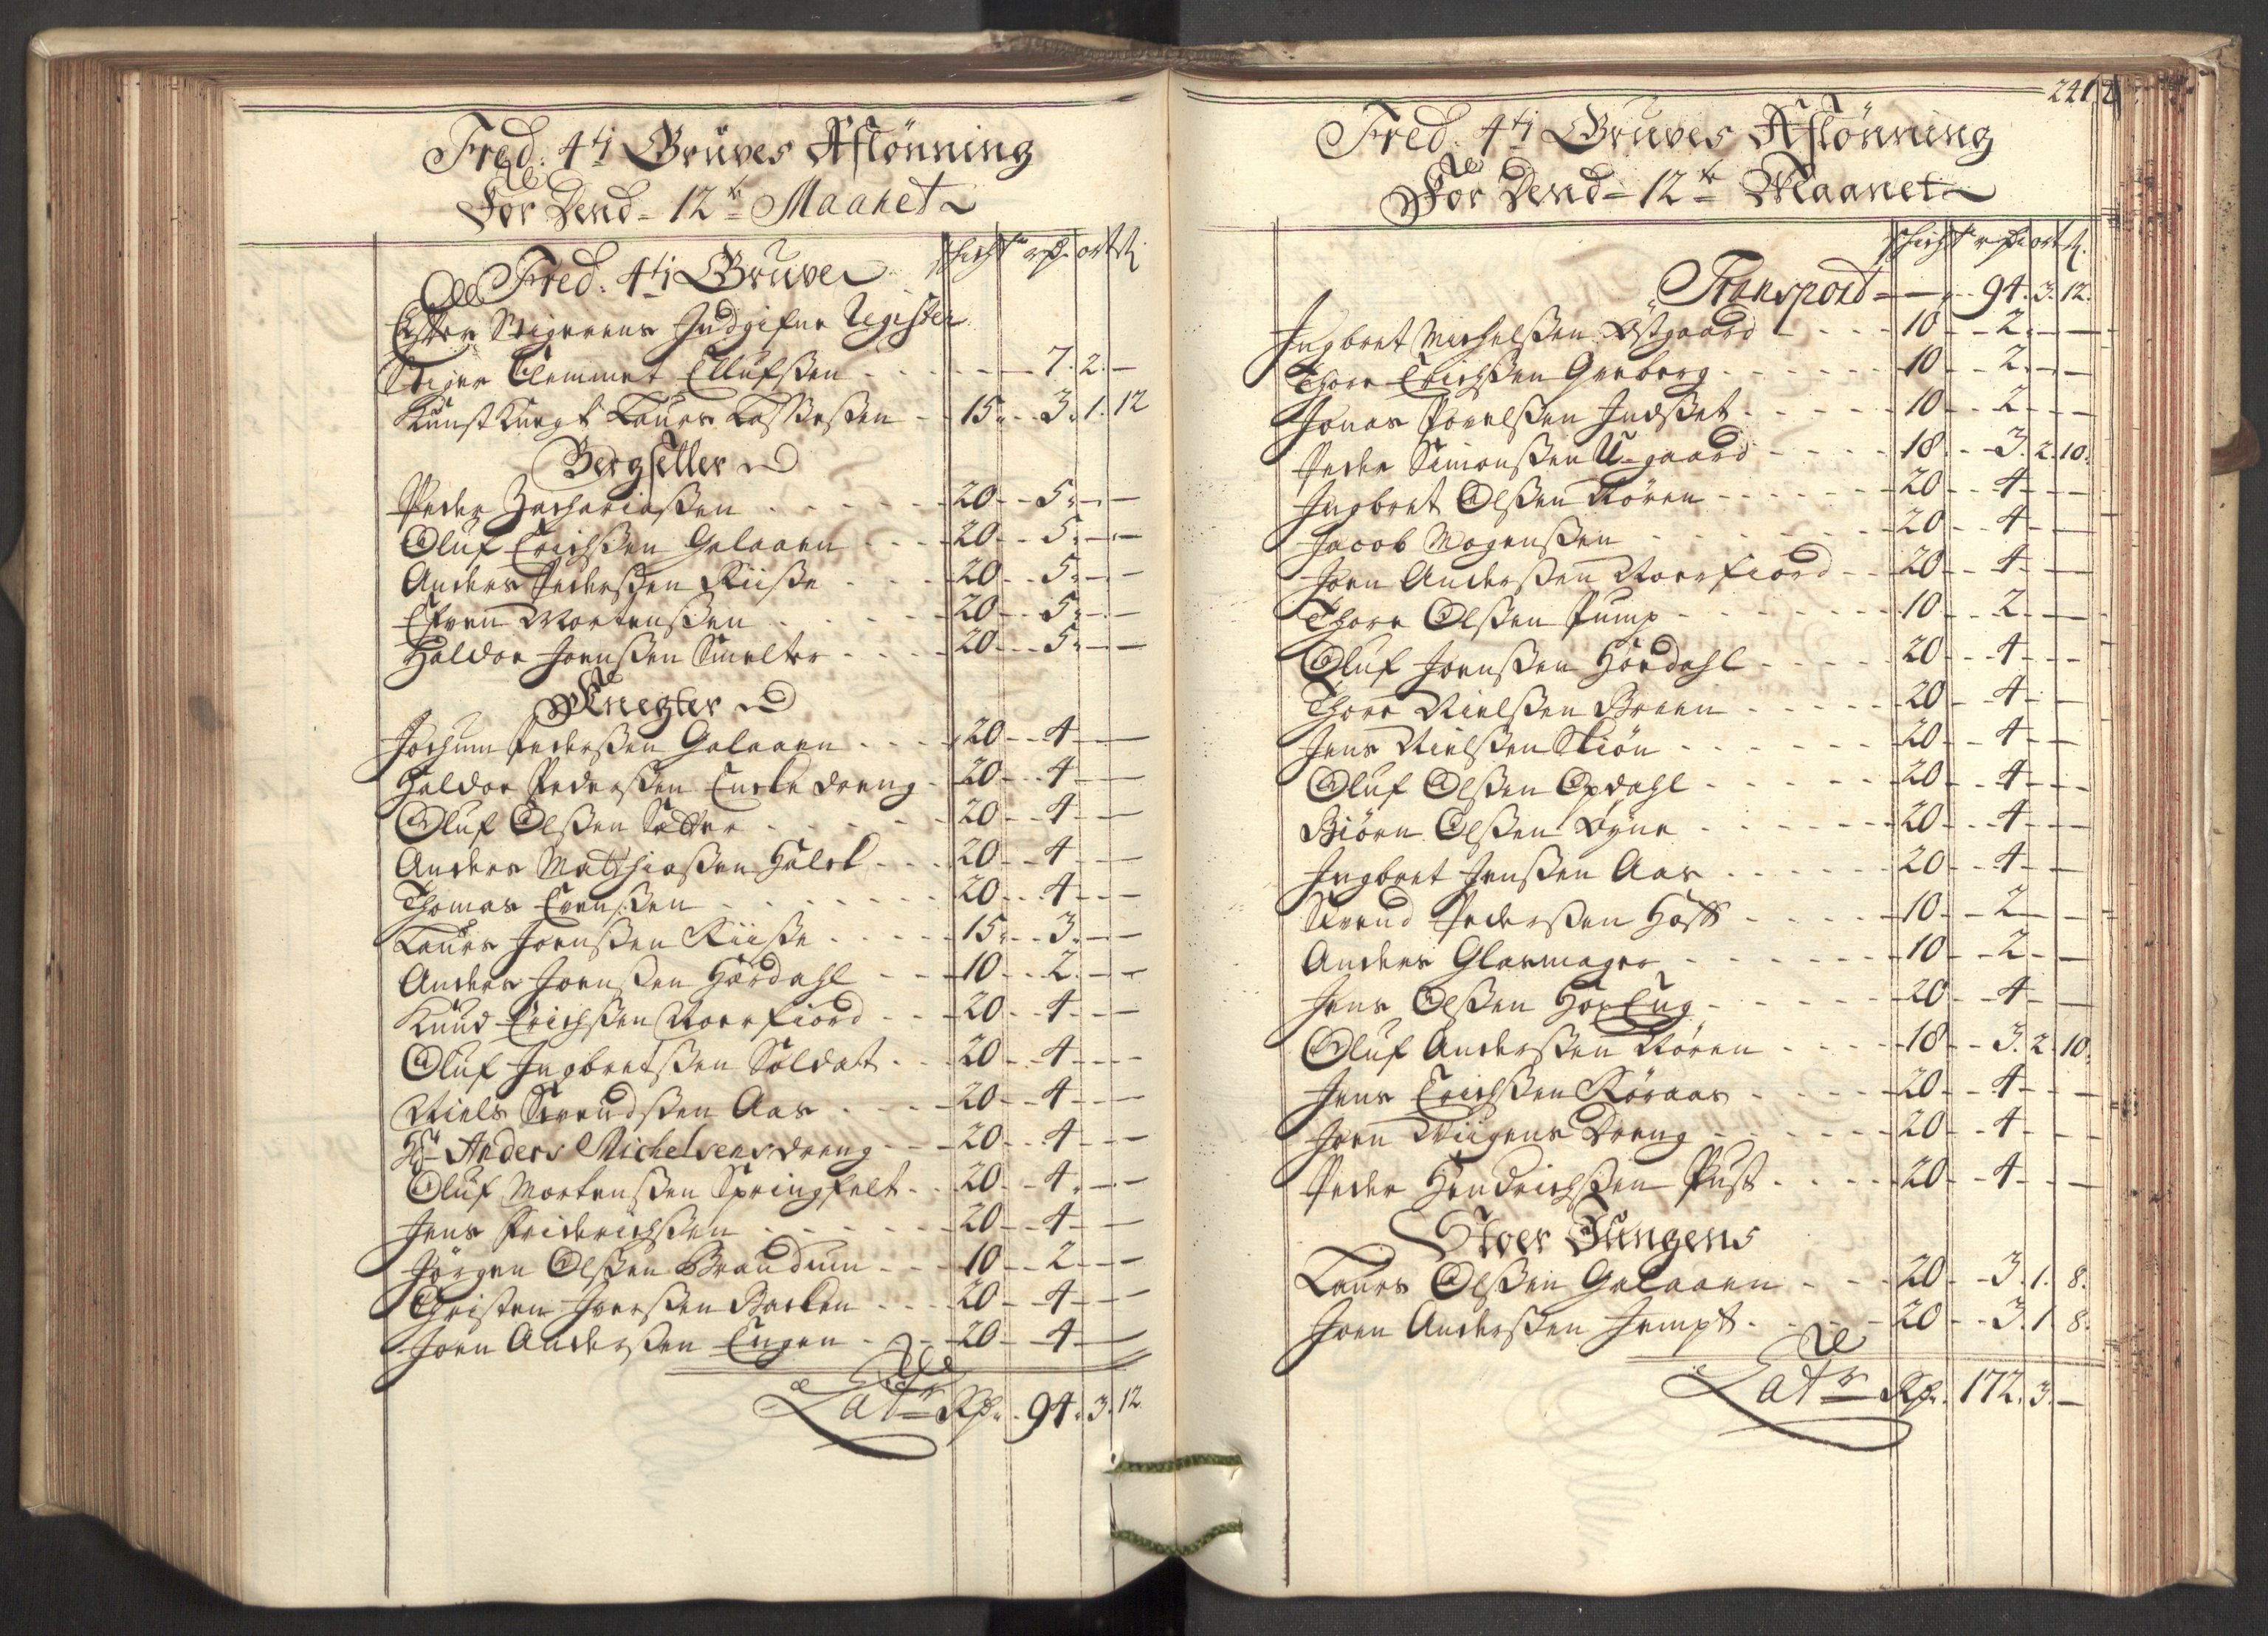 Fred: 4ti Gruves Aflønning
For Dend 12te Maanet
Schicht rp ort ß
Fred: 4ti Gruve
Efter Stigerens Indgifne Register
Stiger Clemmet Ellufsen - - - 7. 2. -
KunstKnegt Laurs Lassesen - 15 - 3. 1. 12
Bergseller
Peder Zachariasen - - - 20 - 5 - -
Oluf Erichsen Galaaen - - - 20 - 5 - -
Anders Pedersen Riise - - - 20 - 5 - -
Efven Mortensen - - - 20 - 5 - -
Haldor Joensen Smelter - - - 20 - 5 - -
Knegter
Jochum Pedersen Galaaen - - - 20 - 4 - -
Haldor Pedersen Encke dreng - 20 - 4 - -
Oluf Olsen Sætter - - - 20 - 4 - -
Anders Mathiasen - - - 20 - 4 - -
Thomas Evensen - - - 20 - 4 - -
Laurs Joensen Riise - - - 15 - 3 - -
Anders Joensen Hørdahl - - - 10 - 2 - -
Knud Erichsen Norfiord - - - 20 - 4 - -
Oluf Ingbretsen Soldat - - - 20 - 4 - -
Niels Svendsen Aas - - - 20 - 4 - -
Hr Anders Michelsens dreng - - 20 - 4 - -
Oluf Mortensen Springfelt - - 20 - 4 - -
Jens Friderichsen - - - 20 - 4 - -
Jørgen Olsen Brandum - - - 10 - 2 - -
Christen Iversen Barken - - - 20 - 4 - -
Joen Andersen Engen - - - 20 - 4 - -
Latr Rp. 94. 3. 12
241
Fred: 4ti Gruves Aflønning
For Dend 12te Maanet
Schicht rp ort ß
Transport - - 94. 3. 12.
Ingbret Michelsen Østgaard - - - 10 - 2 - -
Thore Erichsen Grøberg - - - 10 - 2 - -
Jonas Povelsen Indset - - - 10 - 2 - -
Peder Simonsen U-gaard - - - 18 - 3. 2. 10.
Ingbret Olsen Røren - - - 20 - 4 - -
Jacob Mogensen - - - 20 - 4 - -
Joen Andersen Norfiord - - 20 - 4 - -
Thore Olsen Pump - - - 10 - 2 - -
Oluf Joensen Hørdahl - - - 20 - 4 - -
Thore Nielsen Breen - - - 20 - 4 - -
Jens Nielsen Skiøn - - - 20 - 4 - -
Oluf Olsen Opdahl - - - 20 - 4 - -
Biørn Olsen Øyne - - - 20 - 4 - -
Ingbret Jensen Aas - - - 20 - 4 - -
Svend Pedersen Hoff - - - 10 - 2 - -
Anders Glasmager - - - 10 - 2 - -
Jens Olsen HoxEng - - - 20 - 4 - -
Oluf Andersen Røren - - - 18 - 3. 2. 10.
Jens Erichsen Røraas - - - 20 - 4 - -
Joen Wiigens Dreng - - - 20 - 4 - -
Peder Hendrichsen Pust - - - 20 - 4 - -
Stoer Jungens
Laurs Olsen Galaaen - - - 20 - 3. 1. 8.
Joen Andersen Jempt - - - 20 - 3. 1. 8.
Latr Rp. 172. 3. -